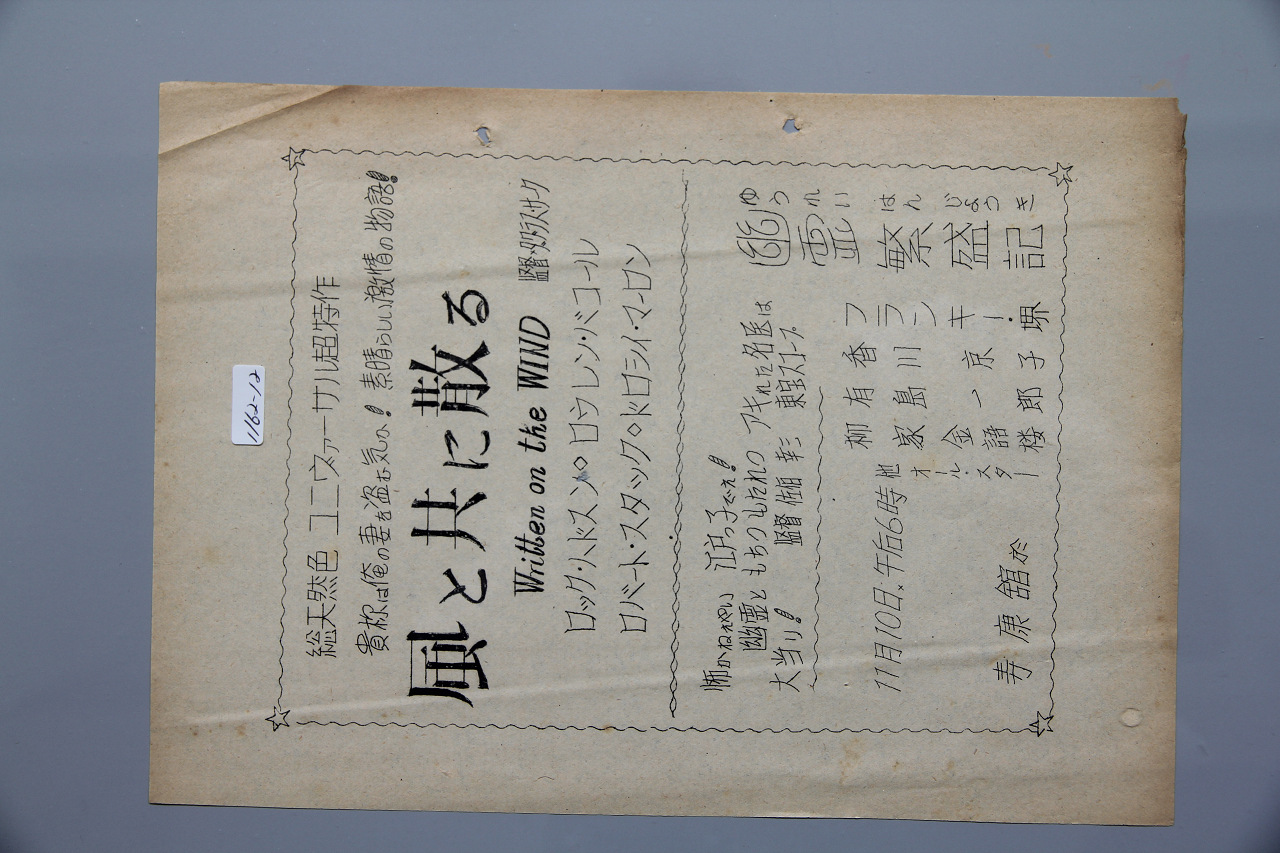 1162-12
総天然色 ユニヴァーサル超特作
貴様は俺の妻を盗む気か! 素晴らしい激情の物語!
風と共に散る
Written on the WIND 監督 ダグラス・サーク
ロック・ハドスン◇ロウレン・バコール
ロバート・スタック◇ドロシイ・マーロン
江戸っ子でえ!
幽霊ともちつもたれつ アキれた名医は
大当り! 監督 佐伯幸三 東宝スコープ
幽霊繁盛記
ゆうれいはんじょうき
フランキー・堺
香川京子
有島一郎
柳家金語楼
他オール・スター
11月10日.午后6時
寿康舘 於